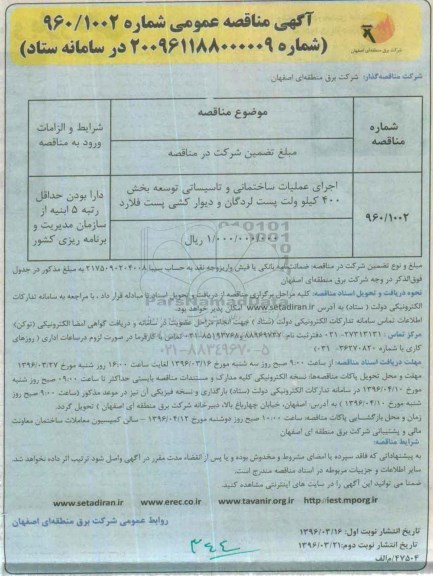 آگهی مناقصه عمومی شماره ۹۶۰/۱۰۰۲
(شماره ۲۰۰۹۶۱۱۸۸۰۰۰۰۰۹ در سامانه ستاد)
شرکت برق منطقه‌ای اصفهان
شرکت مناقصه‌گذار: شرکت برق منطقه‌ای اصفهان
شماره مناقصه
موضوع مناقصه
مبلغ تضمین شرکت در مناقصه
شرایط و الزامات ورود به مناقصه
۹۶۰/۱۰۰۲
اجرای عملیات ساختمانی و تاسیساتی توسعه بخش
۴۰۰ کیلو ولت پست لردگان و دیوار کشی پست فلارد
ریال
دارا بودن حداقل
رتبه ۵ ابنیه از
سازمان مدیریت و
برنامه ریزی کشور
مبلغ و نوع تضمین شرکت در مناقصه: ضمانت‌نامه بانکی یا فیش واریزوجه نقد به حساب سیبا ۲۱۷۵۰۹۰۲۰۴۰۰۸ به مبلغ مذکور در جدول
فوق‌الذکر در وجه شرکت برق منطقه‌ای اصفهان
نحوه دریافت و تحویل اسناد مناقصه: کلیه مراحل برگزاری مناقصه از دریافت و تحویل اسناد تا مبادله قرار داد، با مراجعه به سامانه تدارکات
الکترونیکی دولت (ستاد) به آدرس www.setadiran.ir امکان پذیر خواهد بود.
اطلاعات تماس سامانه تدارکات الکترونیکی دولت (ستاد) جهت انجام مراحل عضویت در سامانه و دریافت گواهی امضا الکترونیکی (توکن):
مرکز تماس: ۲۷۳۱۳۱۳۱-۰۲۱ دفتر ثبت نام: ۸۸۹۶۹۷۳۷ و ۸۵۱۹۳۷۶۸-۰۲۱ تماس با کارفرما در صورت لزوم درساعات اداری (روزهای
کاری با شماره ۳۶۲۷۰۸۲۰-۰۳۱)
مهلت دریافت اسناد مناقصه: از ساعت ۹:۰۰ صبح روز سه شنبه مورخ ۱۳۹۶/۰۳/۱۶ لغایت ساعت ۱۶:۰۰ روز شنبه مورخ ۱۳۹۶/۰۳/۲۷
مهلت و محل تحویل پاکات مناقصه‌ها: نسخه الکترونیکی کلیه مدارک و مستندات مناقصه بایستی حداکثر تا ساعت ۹:۰۰ صبح روز شنبه
مورخ ۱۳۹۶/۰۴/۱۰ در سامانه تدارکات الکترونیکی دولت (ستاد) بارگذاری و نسخه فیزیکی آن نیز در موعد مذکور (ساعت ۹:۰۰ صبح روز
شنبه مورخ ۱۳۹۶/۰۴/۱۰) به آدرس اصفهان، خیابان چهارباغ بالا، دبیرخانه شرکت برق منطقه ای اصفهان تحویل گردد.
زمان و محل بازگشایی پاکات مناقصه: ساعت ۱۰:۰۰ صبح روز دوشنبه مورخ ۱۳۹۶/۰۴/۱۲ – سالن کمیسیون معاملات ساختمان معاونت
مالی و پشتیبانی شرکت برق منطقه ای اصفهان
شرایط مناقصه:
به پیشنهاداتی که فاقد سپرده یا امضای مشروط و مخدوش بوده و یا پس از انقضاء مدت مقرر در آگهی واصل شود ترتیب اثر داده نخواهد شد.
سایر اطلاعات و جزییات مربوطه در اسناد مناقصه مندرج است.
ضمنا می توانید این آگهی را در سایت های اینترنتی مشاهده کنید.
www.setadiran.ir www.erec.co.ir www.tavanir.org.ir http://iest.mporg.ir
روابط عمومی شرکت برق منطقه‌ای اصفهان
تاریخ انتشار نوبت اول: ۱۳۹۶/۰۳/۱۶
تاریخ انتشار نوبت دوم: ۱۳۹۶/۰۳/۲۱
۴۷۵۰۴/م‌الف
ParsNamadData
۰۲۱-۸۸۳۴۹۶۷۰-۵